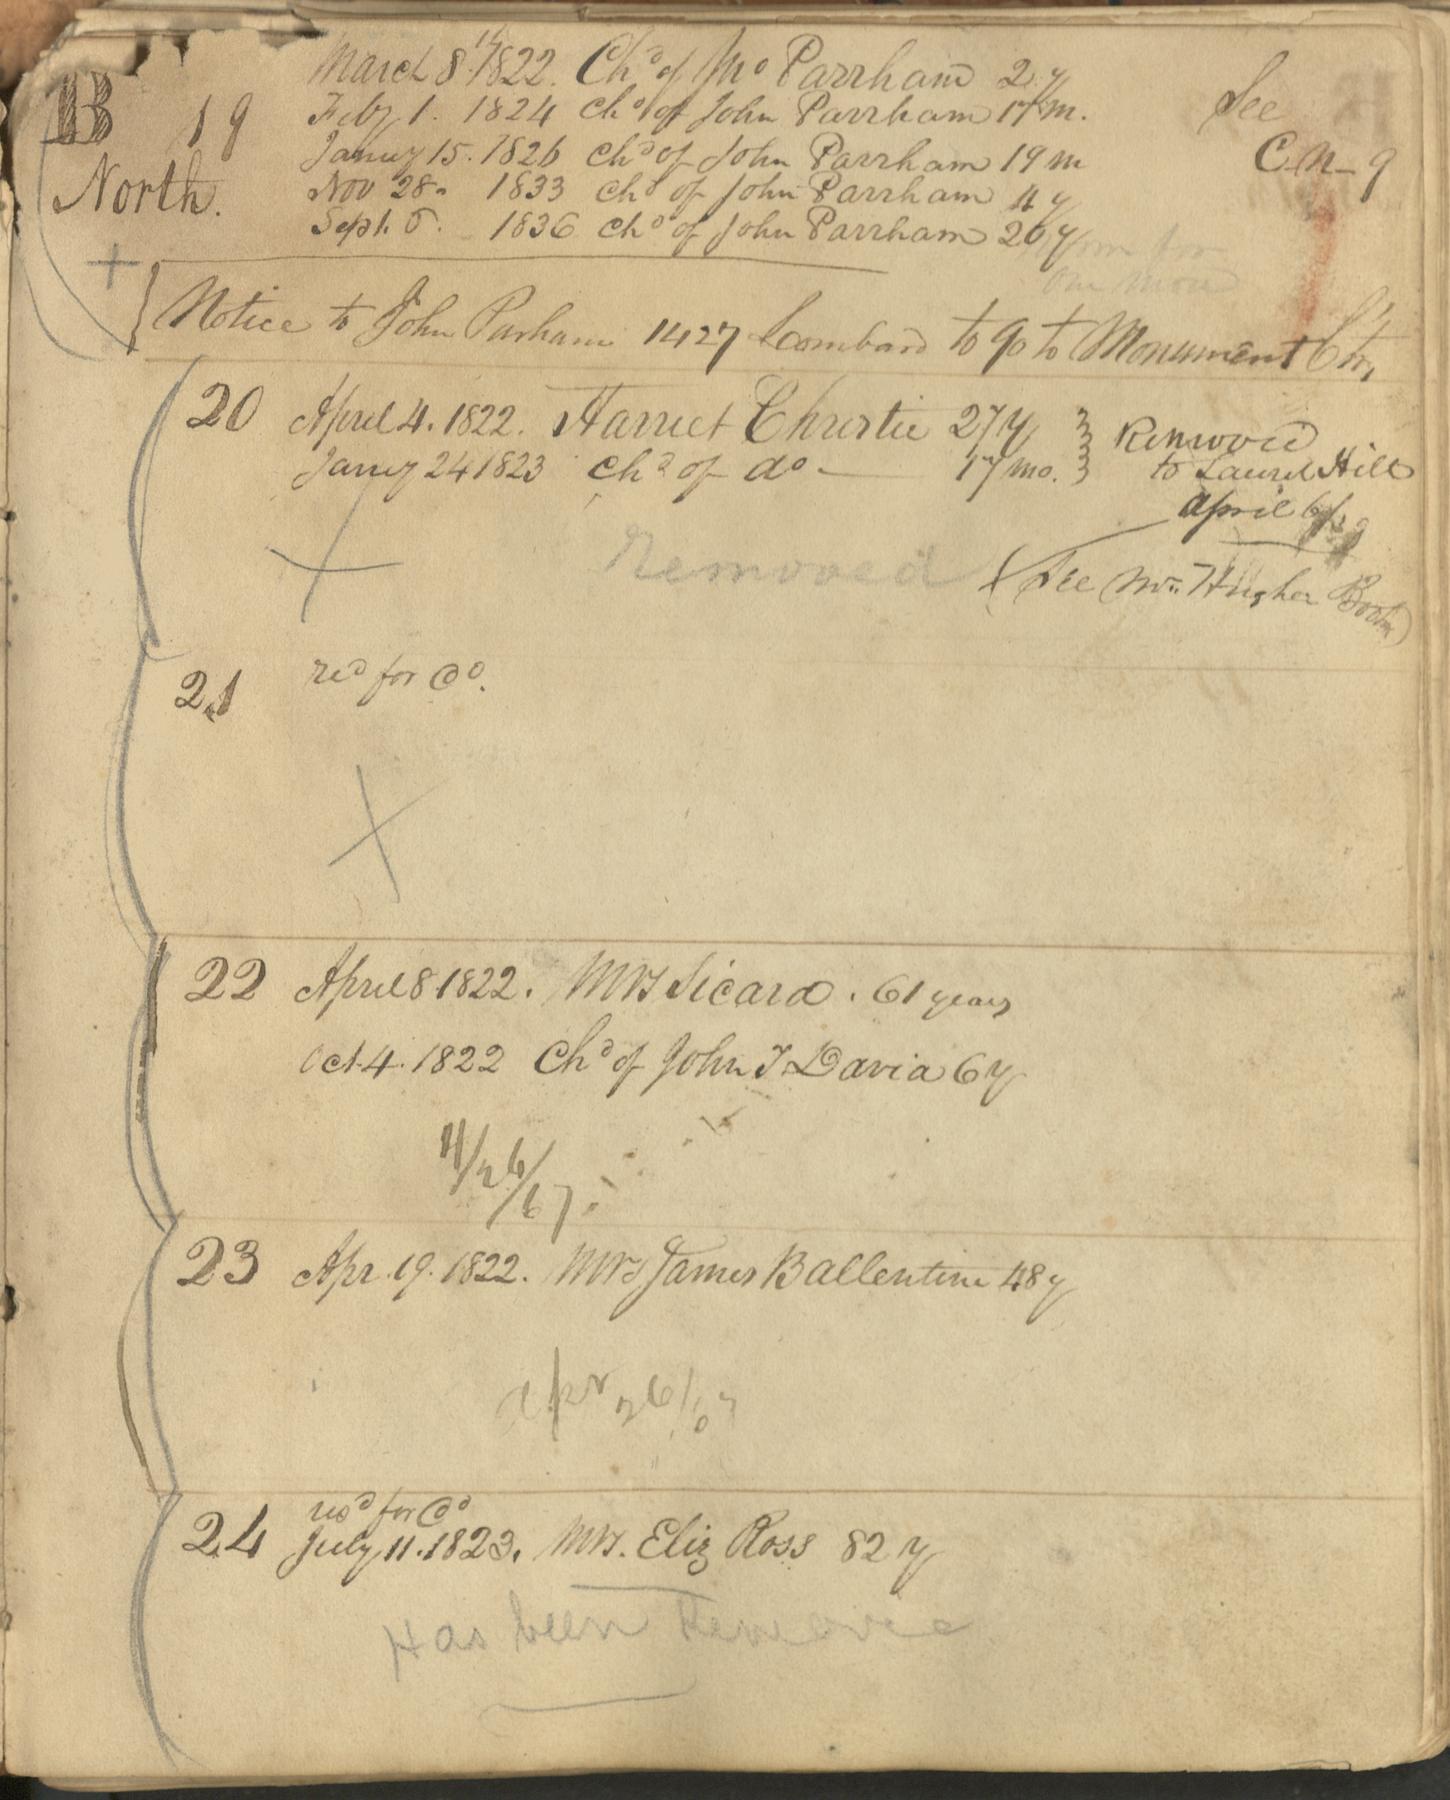 March 8th 1822. Chd of Jno Parrham 2 y
B 19 Feby 1. 1824 chd of John Parrham 17 m. See
Januy 15. 1826 chd of John Parrham 19 m C-n-9
North. Nov 28. 1833 chd of John Parrham 4 y
Sept. 5. 1836 chd of John Parrham 20 y
room for
one more
Notice to John Parham 1427 Lombard to go to Monument Ctry
20 April 4. 1822. Harriet Christie 27 y Removed
Januy 24 1823 chd of do — 17 mo. to Laurel Hill
April 6/
Removed (See Wm Hughes Book)
21 red for Co.
22 April 8 1822. Mrs Sicard. 61 years
Oct. 4. 1822 Chd of John T Davia 6 y
11/26/67
23 Apr. 19. 1822. Mrs James Ballentine 48 y
Apr 26/67
red for Co
24 July 11. 1823. Mrs. Eliz Ross 82 y
Has been Removed